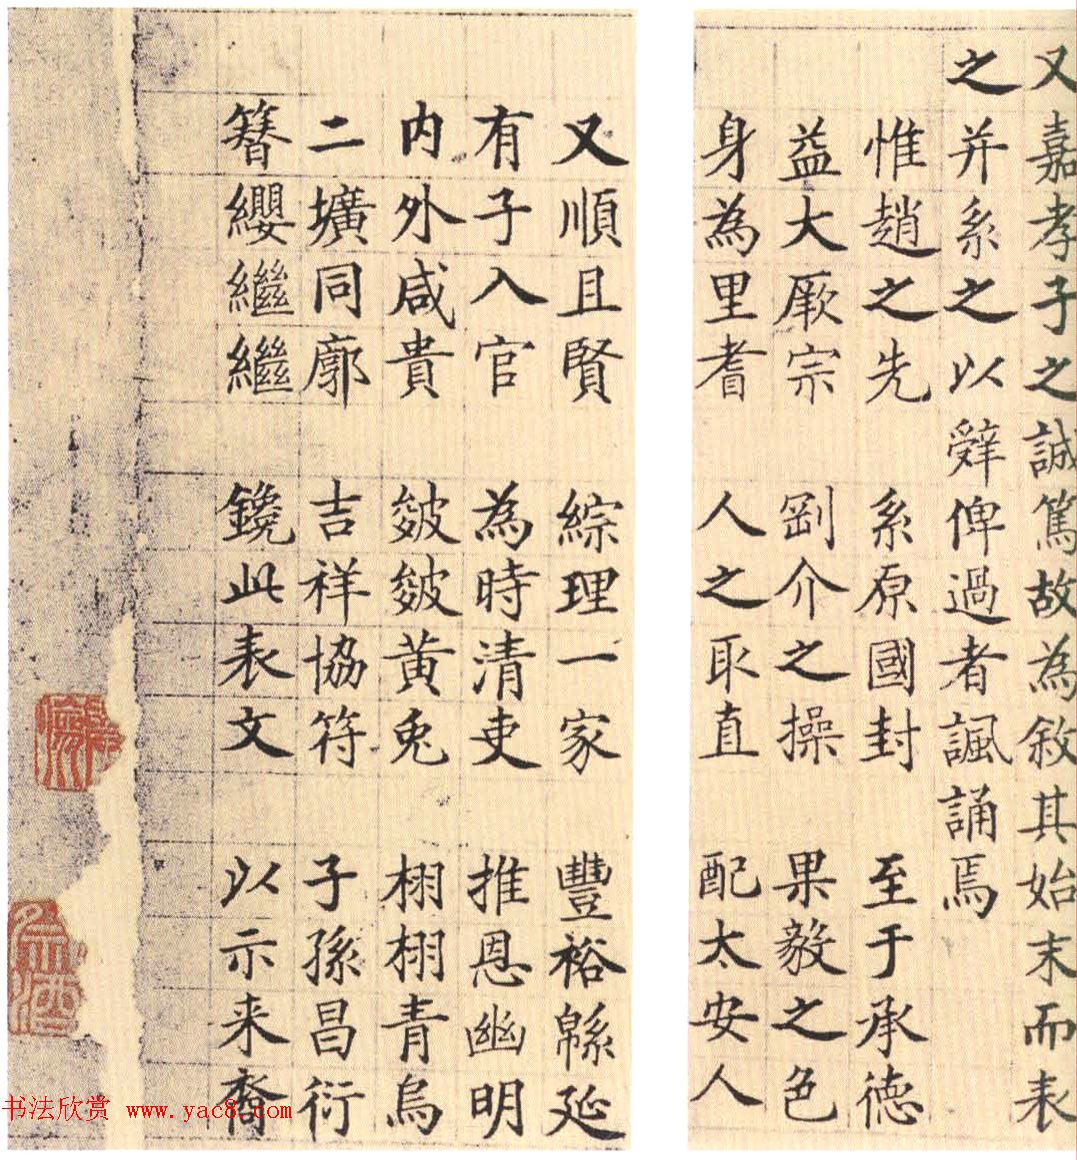 又嘉孝子之誠篤故為敘其始末而表
之并系之以辤俾過者諷誦焉
惟趙之先 系原國封 至于承德
益大厥宗 剛介之操 果毅之色
身為里耆 人之取直 配太安人
又順且賢 綜理一家 豐裕緜延
有子入官 為時清吏 推恩幽明
内外咸貴 皴皴黄兔 栩栩青烏
二壙同廓 吉祥協符 子孫昌衍
簪纓繼繼 鐫此表文 以示来裔
书法欣赏 www.yac8.com